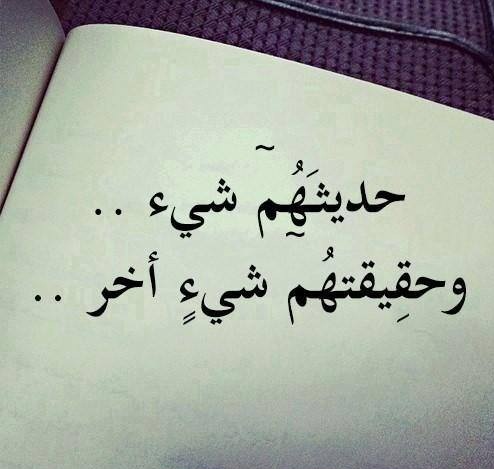 حديثـَهُِم~ شيء ..
وحقِيقتهُم~ شيءٍ أخر ..